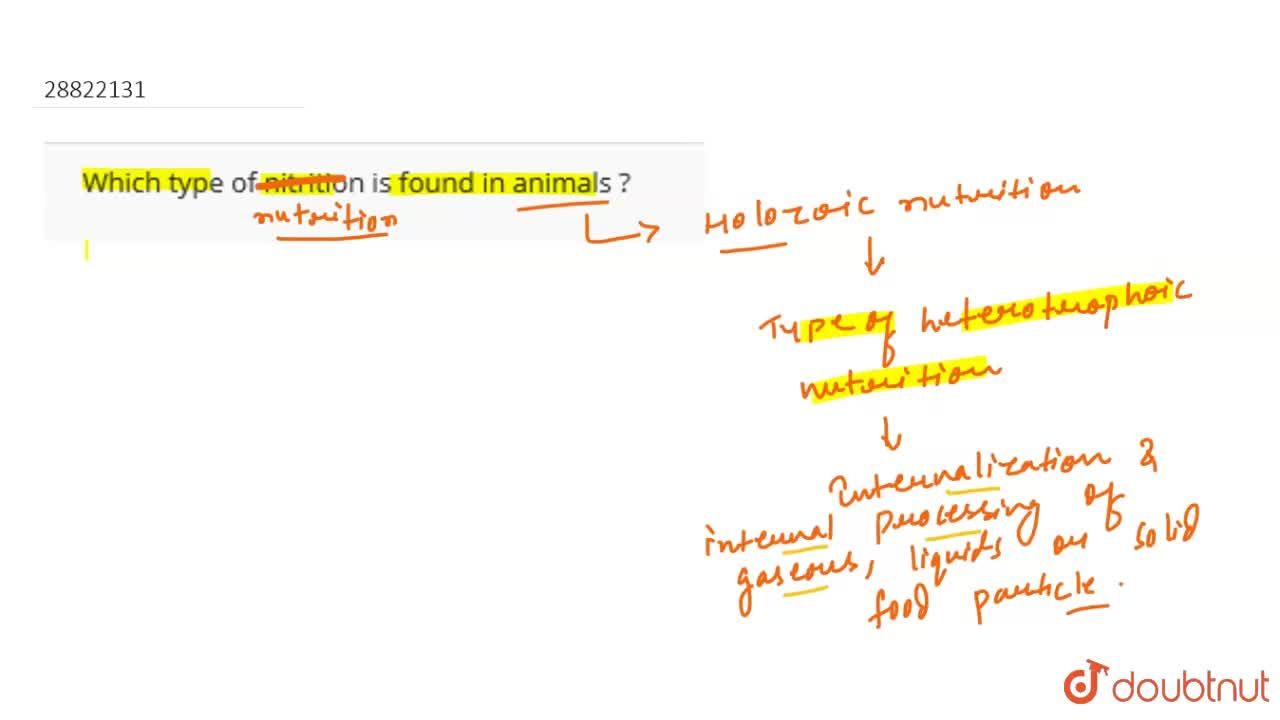 28822131
Which type of nitrition is found in animals ?
nutrition
Holozoic nutrition
Type of heterotrophoic
nutrition
Internalization &
internal processing of
gaseous, liquids or solid
food particle.
doubtnut